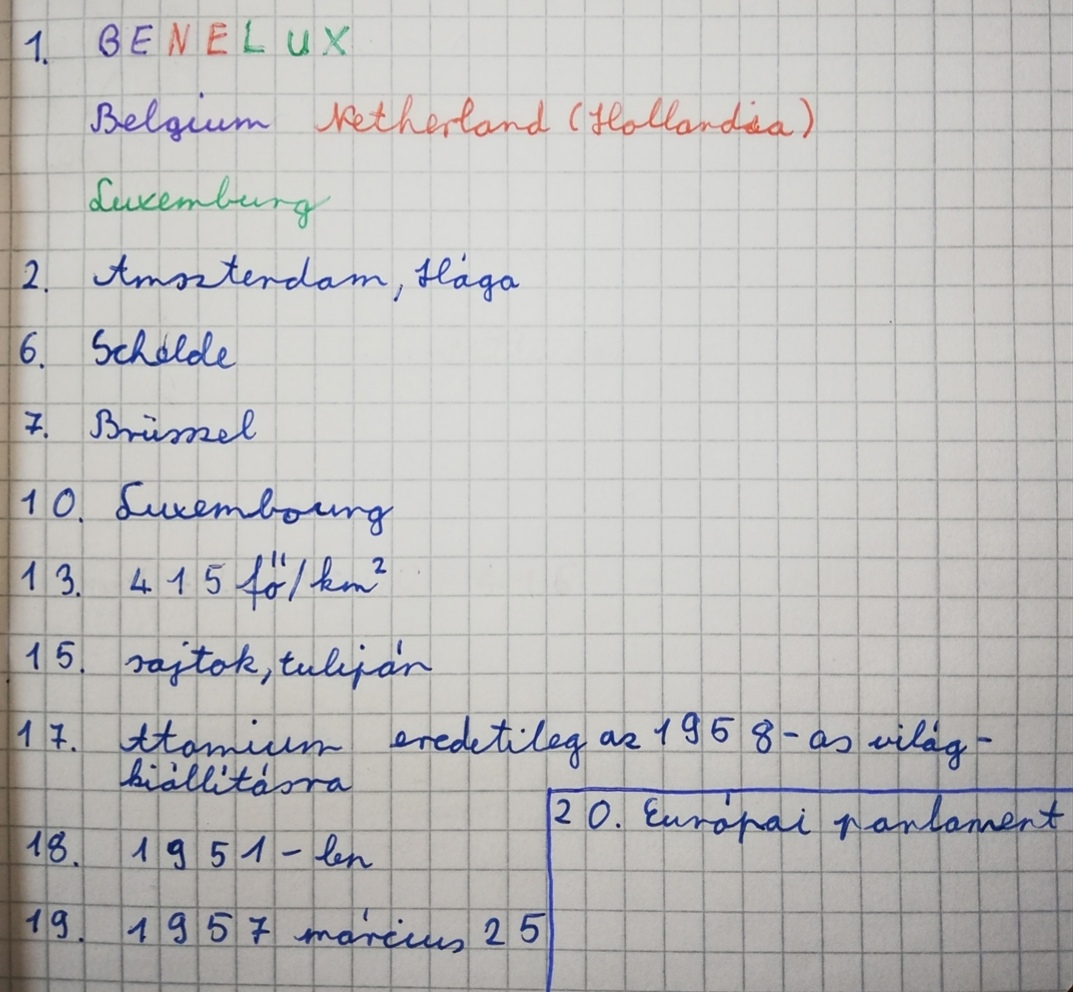 1. BENELUX
Belgium Netherland (Hollandia)
Luxemburg
2. Amszterdam, Hága
6. Schelde
7. Brüsszel
10. Luxembourg
13. 415 fő/km²
15. sajtok, tulipán
17. Atomium eredetileg az 1958-as világ-
kiállításra
20. Európai parlament
18. 1951-ben
19. 1957 március 25